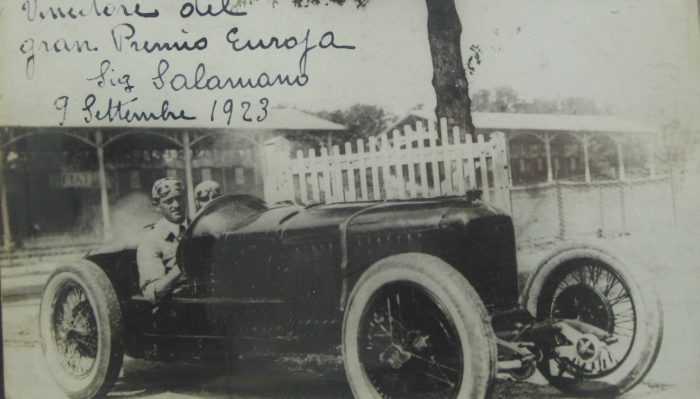 Vincitore del
gran Premio Europa
Sig Salamano
9 Settembre 1923
FIAT